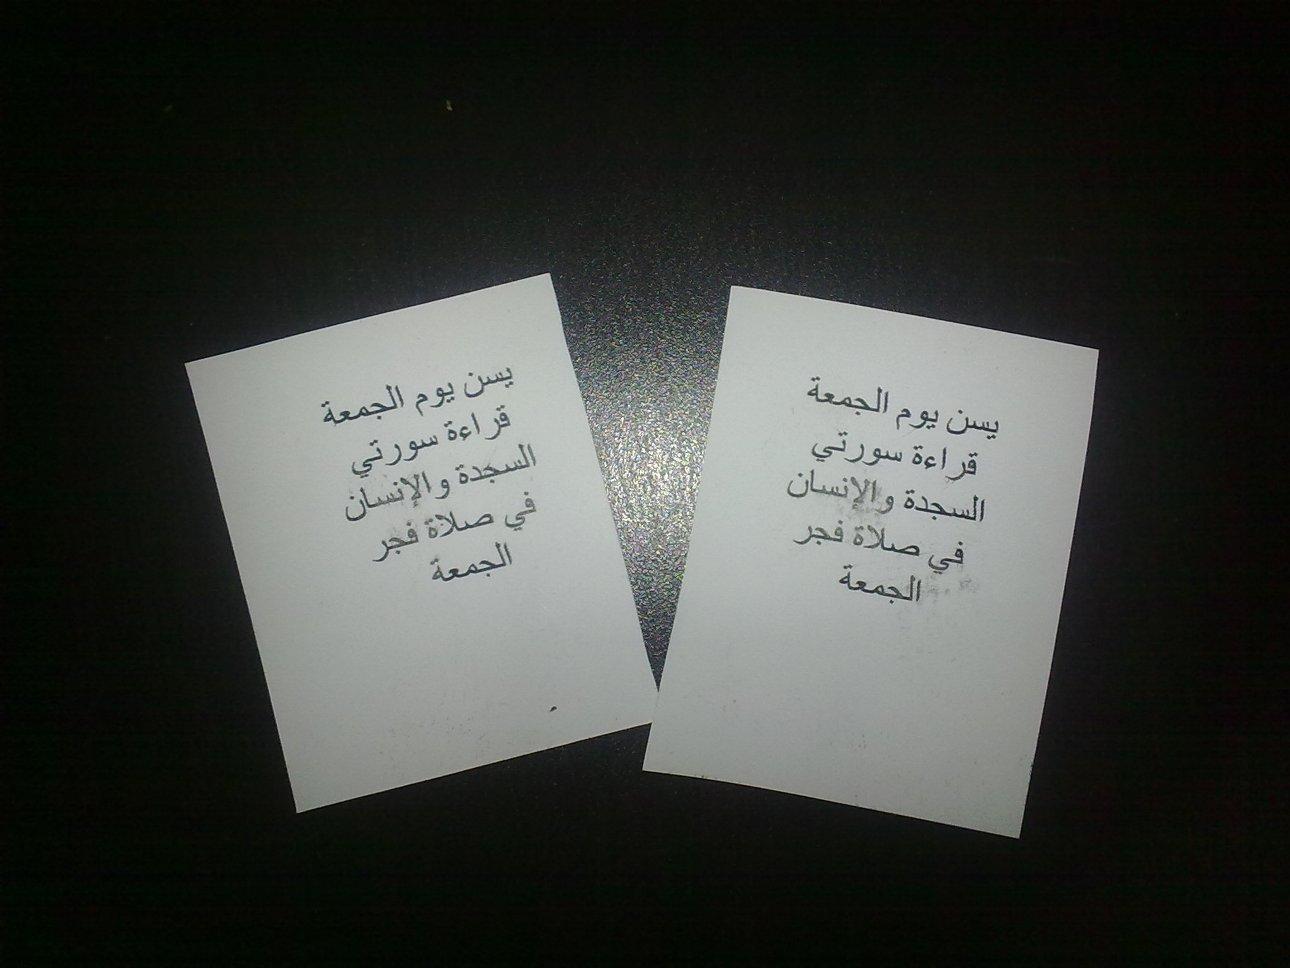 يسن يوم الجمعة
قراءة سورتي
السجدة والإنسان
في صلاة فجر
الجمعة
يسن يوم الجمعة
قراءة سورتي
السجدة والإنسان
في صلاة فجر
الجمعة